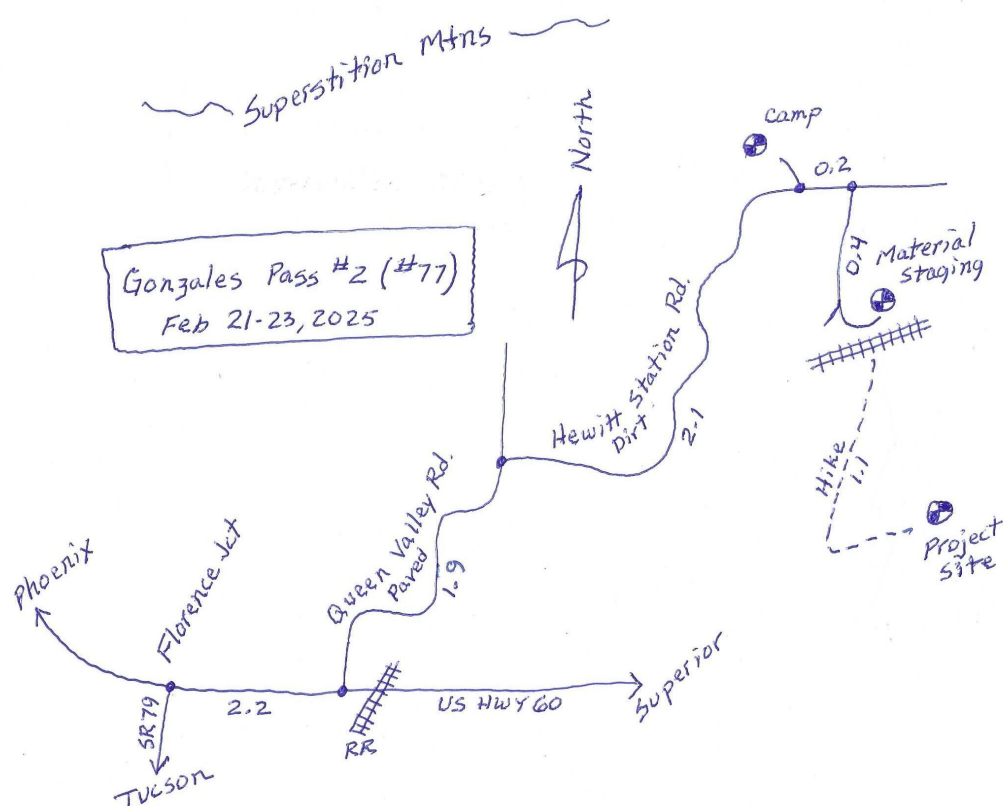 Superstition Mtns
North
camp
0.2
0.4
Material
staging
Gonzales Pass #2 (#77)
Feb 21-23, 2025
Hewitt Station Rd.
Dirt
2.1
Hike
1.1
Project
site
Queen Valley Rd.
Paved
1.9
Phoenix
Florence Jct
SR79
Tucson
2.2
RR
US HWY 60
Superior